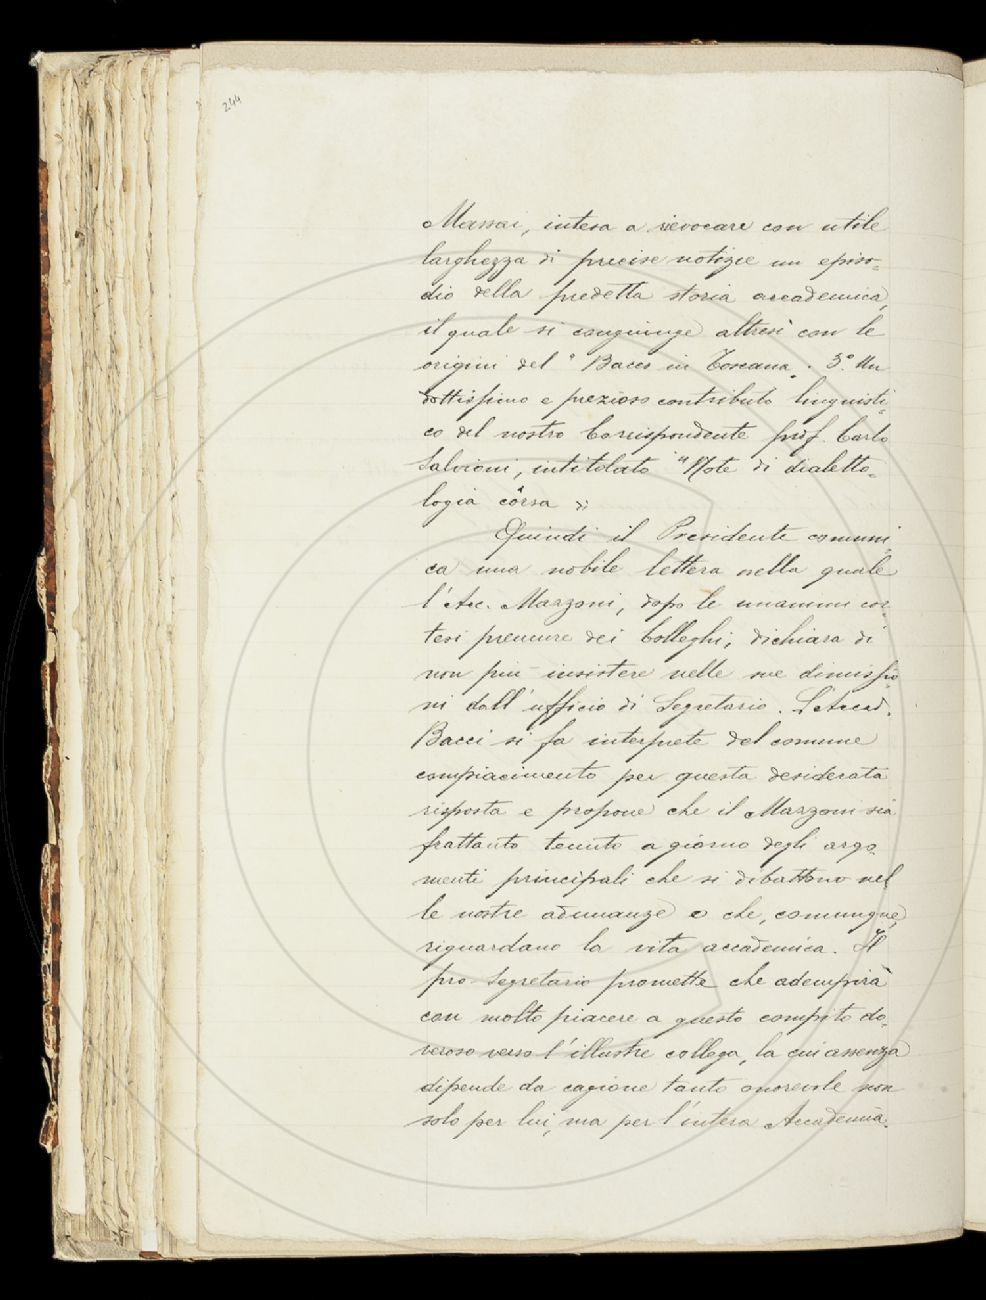 244
Massai, intesa a rievocare con utile
larghezza di precise notizie un episo-
dio della predetta storia accademica,
il quale si congiunge altresì con le
origini del "Bacco in Toscana". 3º. Un
dottissimo e prezioso contributo linguisti-
co del nostro Corrispondente prof. Carlo
Salvioni, intitolato "Note di dialetto-
logia còrsa".
Quindi il Presidente comuni-
ca una nobile lettera nella quale
l'Acc. Mazzoni, dopo le unanimi cor-
tesi premure dei Colleghi, dichiara di
non più insistere nelle sue dimissio-
ni dall'ufficio di Segretario. L'Accad.
Bacci si fa interprete del comune
compiacimento per questa desiderata
risposta e propone che il Mazzoni sia
frattanto tenuto a giorno degli argo-
menti principali che si dibattono nel
le nostre adunanze o che, comunque,
riguardano la vita accademica. Il
pro-Segretario promette che adempirà
con molto piacere a questo compito do-
veroso verso l'illustre collega, la cui assenza
dipende da cagione tanto onorevole non
solo per lui, ma per l'intera Accademia.